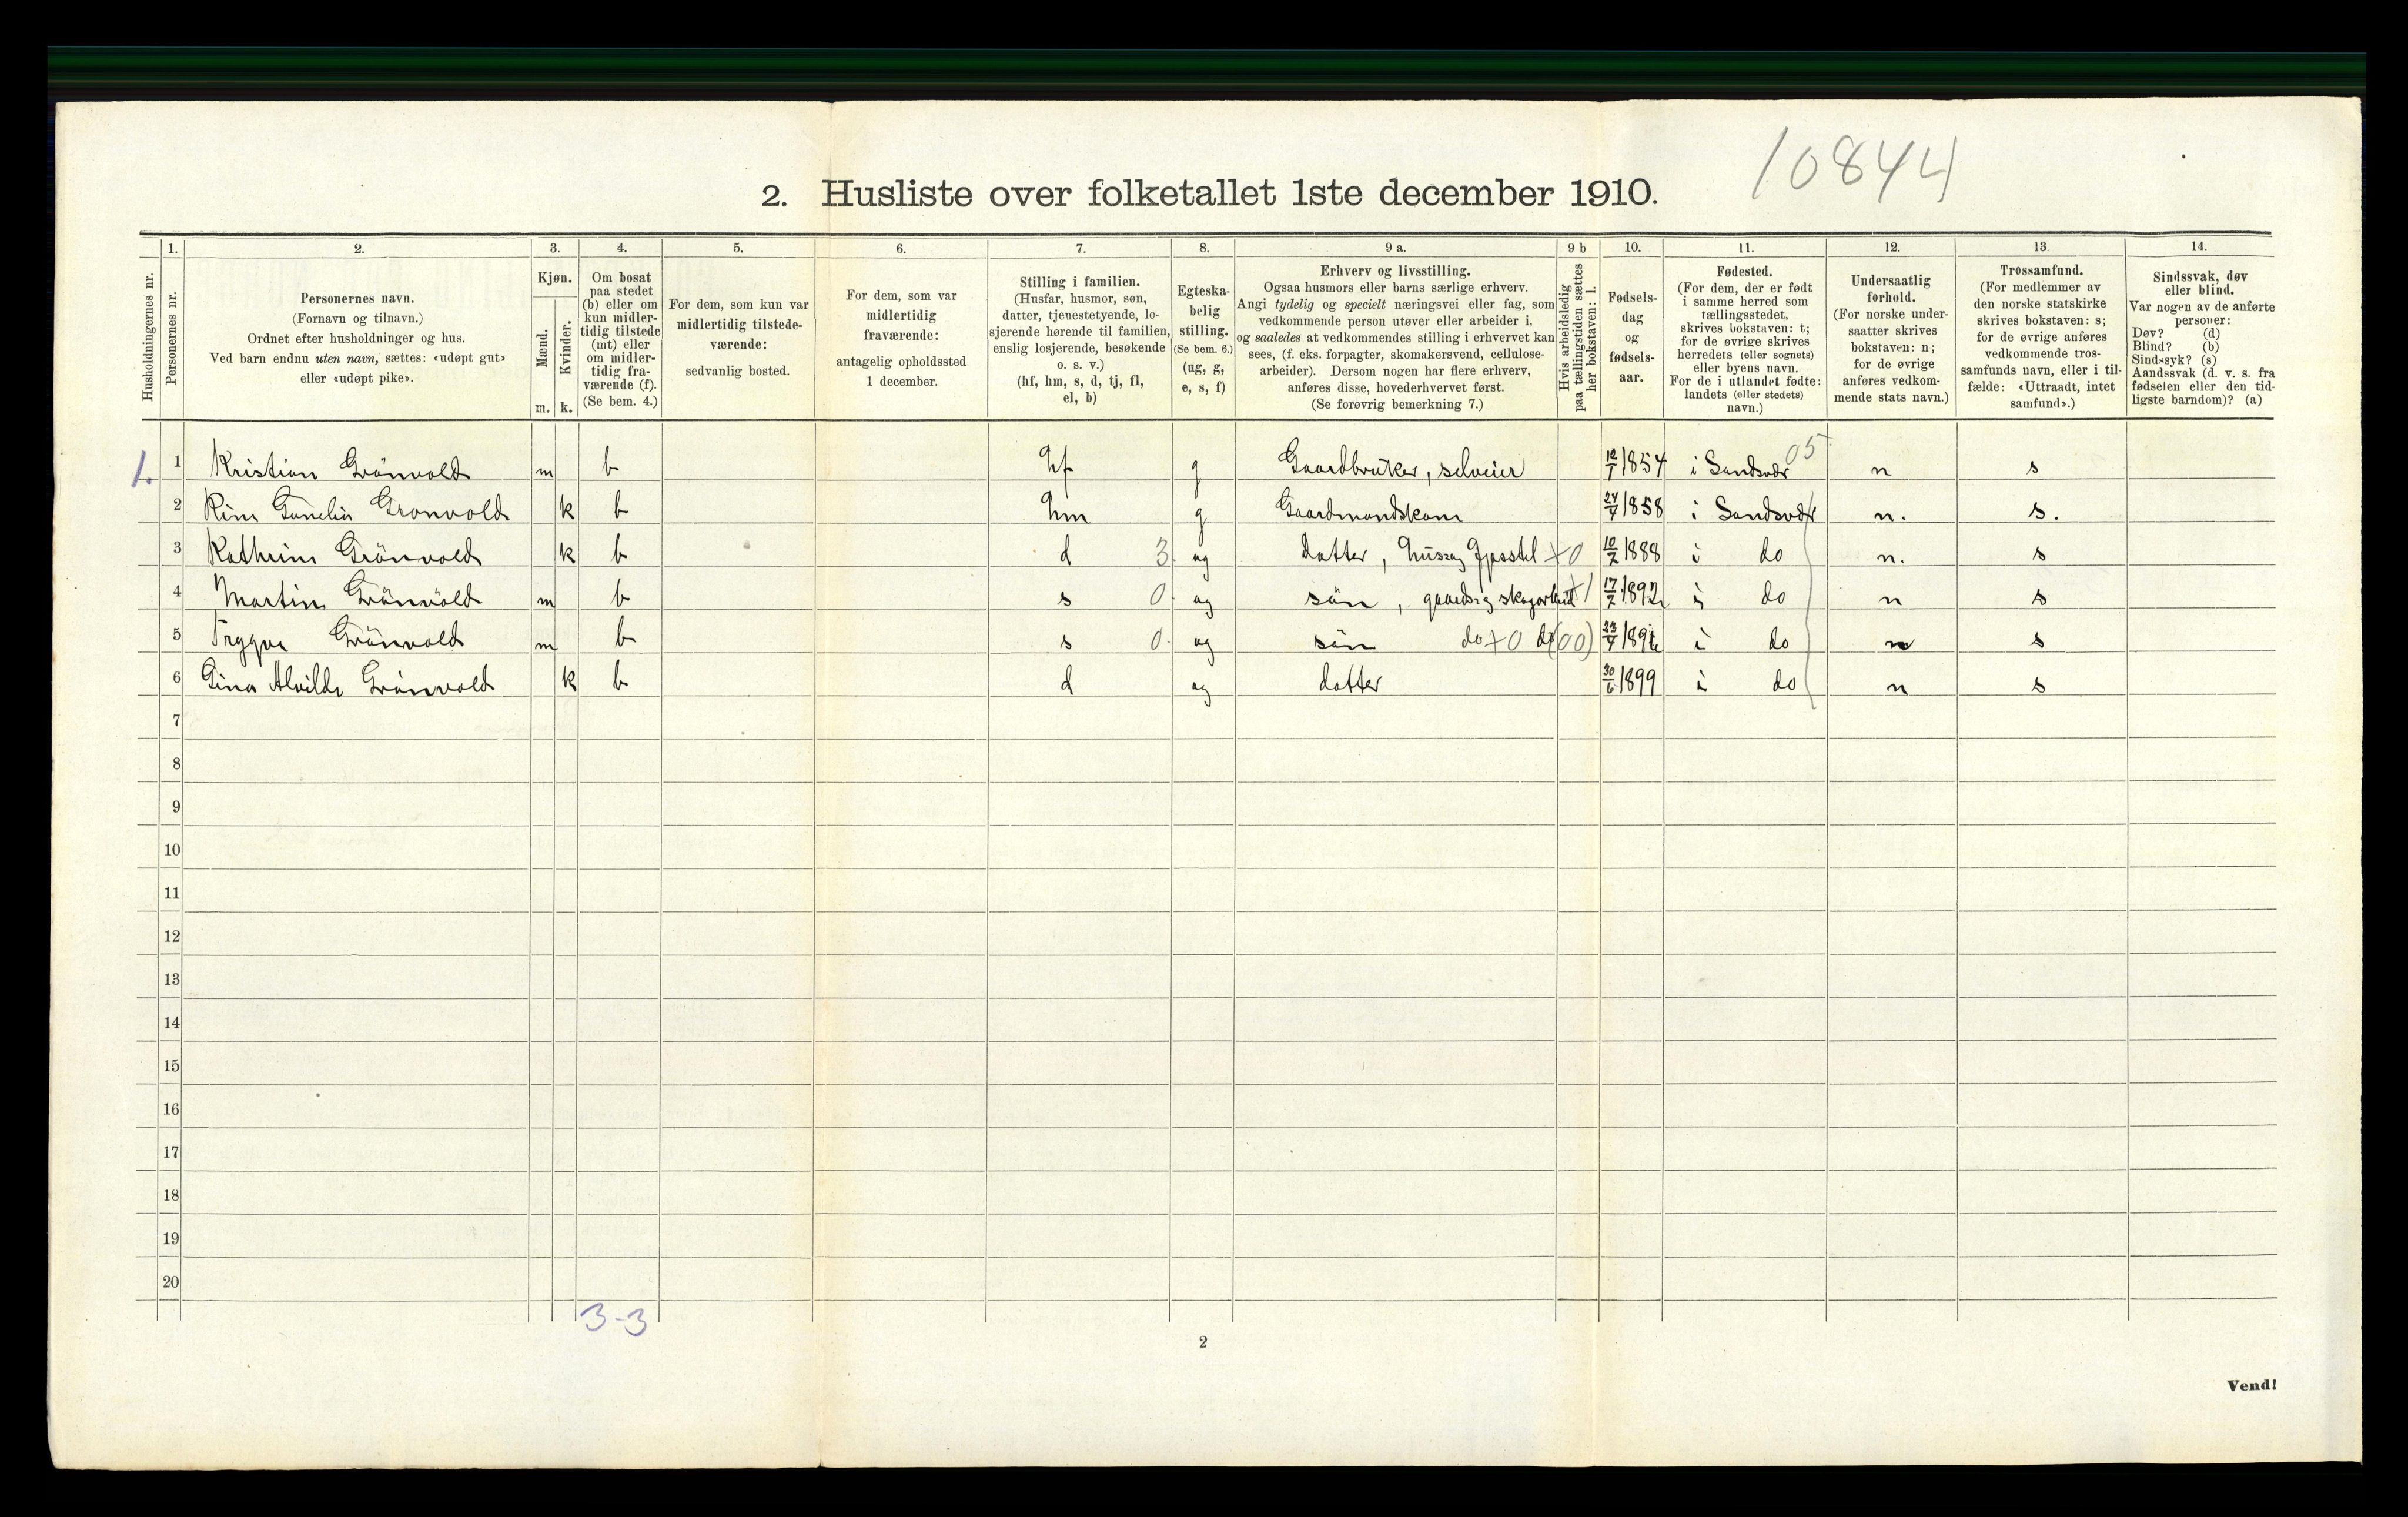 10844
2. Husliste over folketallet 1ste december 1910.
Husholdningernes nr.
1. Personernes nr.
2. Personernes navn.
(Fornavn og tilnavn.)
Ordnet efter husholdninger og hus.
Ved barn endnu uten navn, sættes: «udøpt gut»
eller «udøpt pike».
3. Kjøn.
Mænd. m.
Kvinder. k.
4. Om bosat
paa stedet
(b) eller om
kun midler-
tidig tilstede
(mt) eller
om midler-
tidig fra-
værende (f).
(Se bem. 4.)
5. For dem, som kun var
midlertidig tilstede-
værende:
sedvanlig bosted.
6. For dem, som var
midlertidig
fraværende:
antagelig opholdssted
1 december.
7. Stilling i familien.
(Husfar, husmor, søn,
datter, tjenestetyende, lo-
sjerende hørende til familien,
enslig losjerende, besøkende
o. s. v.)
(hf, hm, s, d, tj, fl,
el, b)
8. Egteska-
belig
stilling.
(Se bem. 6.)
(ug, g,
e, s, f)
9 a. Erhverv og livsstilling.
Ogsaa husmors eller barns særlige erhverv.
Angi tydelig og specielt næringsvei eller fag, som
vedkommende person utøver eller arbeider i,
og saaledes at vedkommendes stilling i erhvervet kan
sees, (f. eks. forpagter, skomakersvend, cellulose-
arbeider). Dersom nogen har flere erhverv,
anføres disse, hovederhvervet først.
(Se forøvrig bemerkning 7.)
9 b Hvis arbeidsledig
paa tællingstiden sættes
her bokstaven: l.
10. Fødsels-
dag
og
fødsels-
aar.
11. Fødested.
(For dem, der er født
i samme herred som
tællingsstedet,
skrives bokstaven: t;
for de øvrige skrives
herredets (eller sognets)
eller byens navn.
For de i utlandet fødte:
landets (eller stedets)
navn.)
12. Undersaatlig
forhold.
(For norske under-
saatter skrives
bokstaven: n;
for de øvrige
anføres vedkom-
mende stats navn.)
13. Trossamfund.
(For medlemmer av
den norske statskirke
skrives bokstaven: s;
for de øvrige anføres
vedkommende tros-
samfunds navn, eller i til-
fælde: «Uttraadt, intet
samfund».)
14. Sindssvak, døv
eller blind.
Var nogen av de anførte
personer:
Døv? (d)
Blind? (b)
Sindssyk? (s)
Aandssvak (d. v. s. fra
fødselen eller den tid-
ligste barndom)? (a)
1. 1 Kristian Grönvold m b hf g Gaardbruker, selveier 12/1 1854 i Sandsvær 05 n s
2 Grönvold k b hm g Gaardmandskone 24/4 1858 i Sandsvær n. s.
3 Kathrine Grönvold k b d 3 ug datter, +0 10/2 1888 i do n. s
4 Martin Grönvold m b s 0 ug sön, +1 17/7 1892 i do n s
5 Trygve Grönvold m b s 0 ug sön do +0 do (00) 23/4 i do n s
6 Gina Alvilde Grönvold k b d ug datter 30/6 1899 i do n s
7
8
9
10
11
12
13
14
15
16
17
18
19
20
3-3
2
Vend!